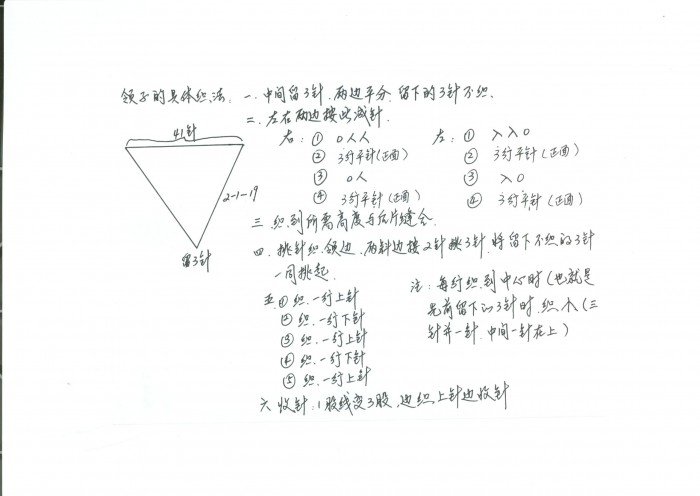 领子的具体织法: 一. 中间留3针, 两边平分, 留下的3针不织.
二. 左右两边按此减针.
41针
右: ① 0人人
② 3行平针(正面)
③ 0人
④ 3行平针(正面)
左: ① 入入0
② 3行平针(正面)
③ 入0
④ 3行平针(正面)
2-1-19
留3针
三. 织到所需高度与后片缝合.
四. 挑针织领边, 两斜边按2针挑3针, 将留下不织的3针
一同挑起.
五. ① 织一行上针
② 织一行下针
③ 织一行上针
④ 织一行下针
⑤ 织一行上针
注: 每行织到中心时(也就是
先前留下的3针时, 织个(三
针并一针, 中间一针在上)
六. 收针: 1股线变3股, 边织上针边收针